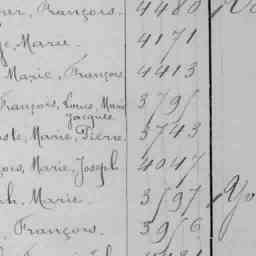 François. 4480
Marie. 4171
Marie, François 4413
François, Louis, Marie
Jacques 3795
Marie, Pierre. 3743
Marie, Joseph 4047
Marie. 3597
François. 3956